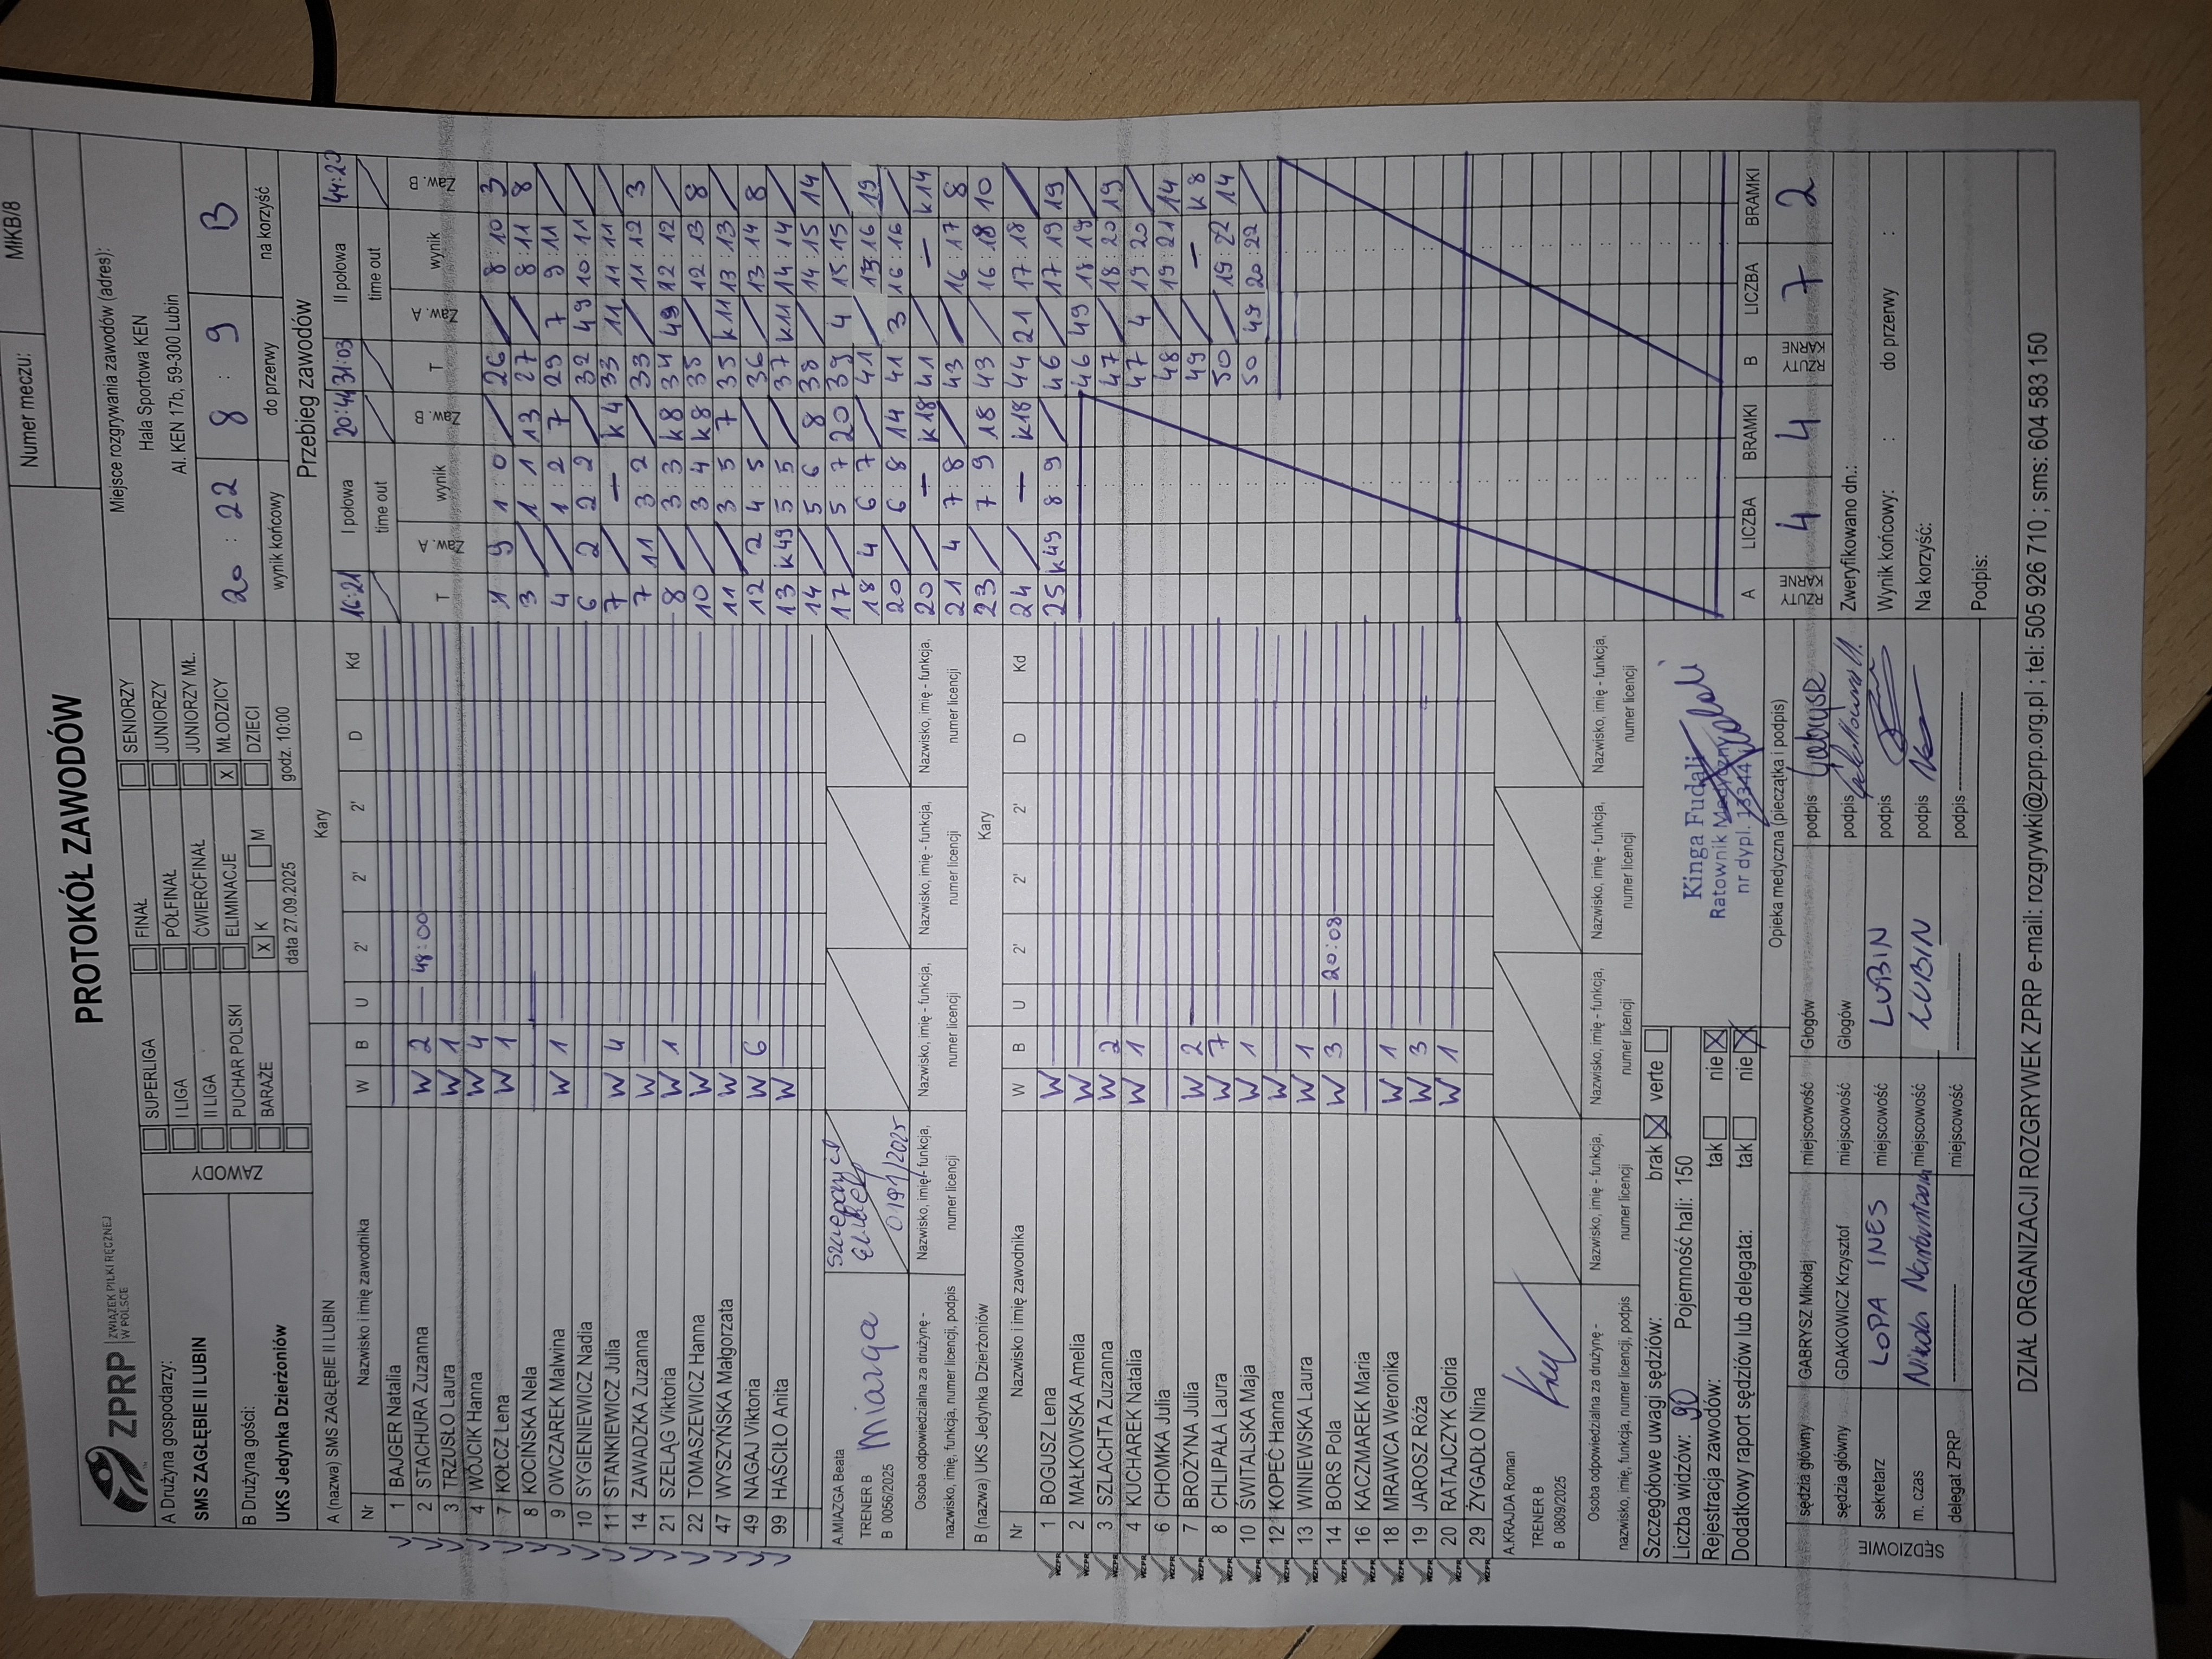 ZPRP ZWIĄZEK PIŁKI RĘCZNEJ W POLSCE
PROTOKÓŁ ZAWODÓW
Numer meczu: MłKB/8
A Drużyna gospodarzy:
SMS ZAGŁĘBIE II LUBIN
B Drużyna gości:
UKS Jedynka Dzierżoniów
ZAWODY
SUPERLIGA
I LIGA
II LIGA
PUCHAR POLSKI
BARAŻE
FINAŁ
PÓŁFINAŁ
ĆWIERĆFINAŁ
ELIMINACJE
X K M
SENIORZY
JUNIORZY
JUNIORZY MŁ.
X MŁODZICY
DZIECI
data 27.09.2025 godz. 10:00
Miejsce rozgrywania zawodów (adres):
Hala Sportowa KEN
Al. KEN 17b, 59-300 Lubin
20 : 22 8 : 9 B
wynik końcowy do przerwy na korzyść
A (nazwa) SMS ZAGŁĘBIE II LUBIN Kary
Nr Nazwisko i imię zawodnika W B U 2' 2' 2' D Kd
1 BAJGER Natalia
2 STACHURA Zuzanna W 2 48:00
3 TRZUSŁO Laura W 1
4 WÓJCIK Hanna W 4
7 KOŁCZ Lena W 1
8 KOCIŃSKA Nela
9 OWCZAREK Malwina W 1
10 SYGIENIEWICZ Nadia
11 STANKIEWICZ Julia W 4
14 ZAWADZKA Zuzanna W
21 SZELĄG Viktoria W 1
22 TOMASZEWICZ Hanna W
47 WYSZYŃSKA Małgorzata W
49 NAGAJ Viktoria W 6
99 HAŚCIŁO Anita W
A.MIAZGA Beata
TRENER B Miazga
B 0056/2025
0191/2025
Osoba odpowiedzialna za drużynę -
nazwisko, imię, funkcja, numer licencji, podpis
Nazwisko, imię - funkcja, numer licencji
Nazwisko, imię - funkcja, numer licencji
Nazwisko, imię - funkcja, numer licencji
Nazwisko, imię - funkcja, numer licencji
B (nazwa) UKS Jedynka Dzierżoniów Kary
Nr Nazwisko i imię zawodnika W B U 2' 2' 2' D Kd
1 BOGUSZ Lena W
2 MAŁKOWSKA Amelia W
3 SZLACHTA Zuzanna W 2
4 KUCHAREK Natalia W 1
6 CHOMKA Julia
7 BROŻYNA Julia W 2
8 CHLIPAŁA Laura W 7
10 ŚWITALSKA Maja W 1
12 KOPEĆ Hanna W
13 WINIEWSKA Laura W 1
14 BORS Pola W 3 20:08
16 KACZMAREK Maria
18 MRAWCA Weronika W 1
19 JAROSZ Róża W 3
20 RATAJCZYK Gloria W 1
29 ŻYGADŁO Nina
A.KRAJDA Roman
TRENER B
B 0809/2025
Osoba odpowiedzialna za drużynę -
nazwisko, imię, funkcja, numer licencji, podpis
Nazwisko, imię - funkcja, numer licencji
Nazwisko, imię - funkcja, numer licencji
Nazwisko, imię - funkcja, numer licencji
Nazwisko, imię - funkcja, numer licencji
Szczegółowe uwagi sędziów: brak X verte
Liczba widzów: 90 Pojemność hali: 150
Rejestracja zawodów: tak nie X
Dodatkowy raport sędziów lub delegata: tak nie X
Kinga Fudali
Ratownik Medyczny
nr dypl. 13344
Opieka medyczna (pieczątka i podpis)
SĘDZIOWIE
sędzia główny GABRYSZ Mikołaj miejscowość Głogów podpis Gabrysz
sędzia główny GDAKOWICZ Krzysztof miejscowość Głogów podpis
sekretarz LOPA INES miejscowość LUBIN podpis
m. czas Nikola miejscowość LUBIN podpis
delegat ZPRP miejscowość podpis
Przebieg zawodów
I połowa II połowa
16:21 20:44 31:03 44:20
time out time out
T Zaw. A wynik Zaw. B T Zaw. A wynik Zaw. B
1 9 1 0 26 8:10 3
3 1:1 13 27 8:11 8
4 1:2 7 29 7 9:11
6 2 2:2 32 49 10:11
7 — K4 33 11 11:11
7 11 3 2 33 11:12 3
8 3:3 K8 34 49 12:12
10 3:4 K8 35 12:13 8
11 3:5 7 35 K11 13:13
12 2 4:5 36 13:14 8
13 K49 5:5 37 K11 14:14
14 5 6 8 38 14:15 14
17 5:7 20 39 4 15:15
18 4 6 7 41 15:16 19
20 6:8 14 41 3 16:16
20 — K18 41 — K14
21 4 7:8 43 16:17 8
23 7:9 18 43 16:18 10
24 — K18 44 21 17:18
25 K49 8:9 46 17:19 19
46 49 18:19
47 18:20 19
47 4 19:20
48 19:21 14
49 — K8
50 19:22 14
50 49 20:22
A LICZBA BRAMKI B LICZBA BRAMKI
RZUTY KARNE 4 4 RZUTY KARNE 7 2
Zweryfikowano dn.:
Wynik końcowy: : do przerwy :
Na korzyść:
Podpis:
DZIAŁ ORGANIZACJI ROZGRYWEK ZPRP e-mail: rozgrywki@zprp.org.pl ; tel: 505 926 710 ; sms: 604 583 150